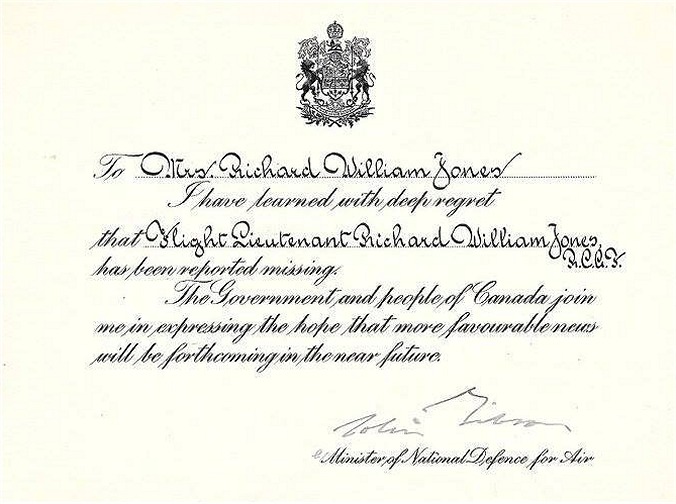 To Mrs. Richard William Jones
I have learned with deep regret
that Flight Lieutenant Richard William Jones,
R.C.A.F.
has been reported missing.
The Government and people of Canada join
me in expressing the hope that more favourable news
will be forthcoming in the near future.
Colin Gibson
Minister of National Defence for Air